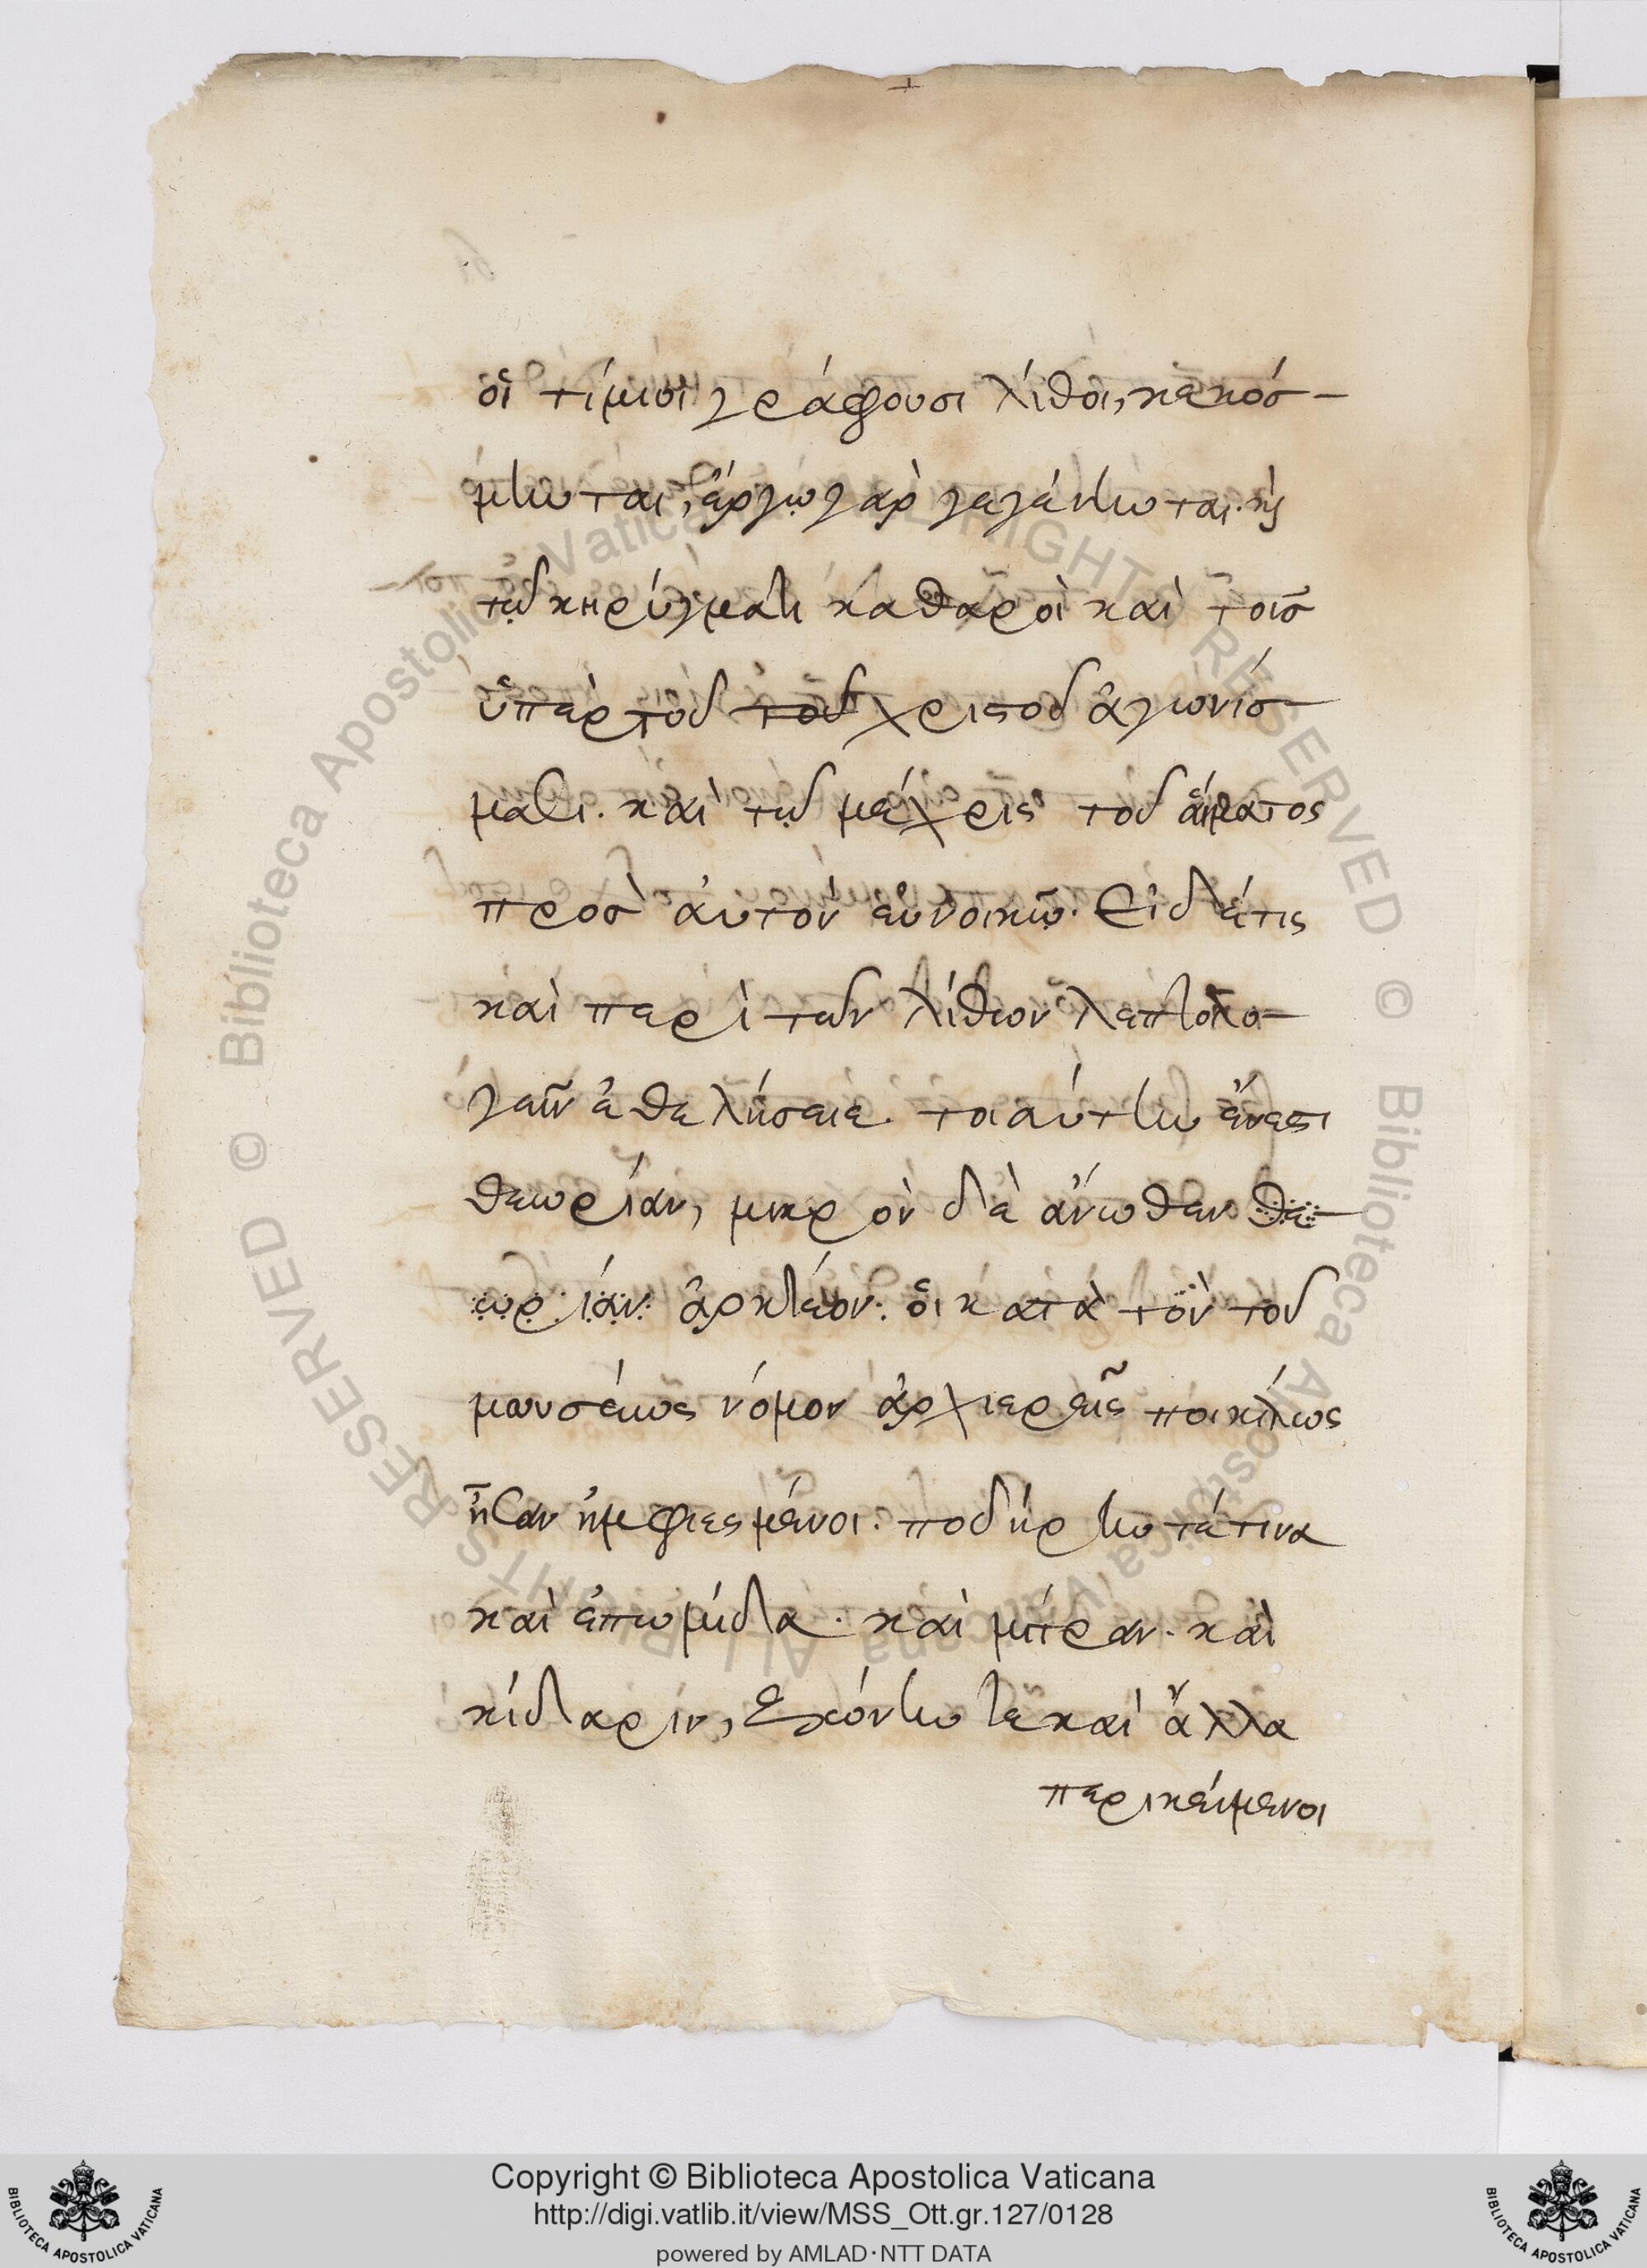 οἱ τίμιοι γράφουσι λίθοι, κεκόσ-
μηνται, ἔργῳ γὰρ γεγένηνται. κỳ
τῷ κηρύγματι καθαροὶ καὶ τοῖσ
ὑπὲρ τοῦ τοῦ χριστοῦ ἀγωνίσ-
μασι. καὶ τῷ μέχρις τοῦ αἵματος
πρὸσ αὐτὸν εὐνοικῷ. Εἰ δέ τις
καὶ περὶ τῶν λίθων λεπτολο-
γεῖν ἐθελήσειε. τοιαύτην ἔνεστι
θεωρίαν, μικρὸν δὲ ἄνωθεν θε-
ωρίαν. ἀρκτέον. οἱ κατὰ τὸν τοῦ
μωυσέως νόμον ἀρχιερεῖς ποικίλως
ἦσαν ἠμφιεσμένοι. ποδήρην τέ τινα
καὶ ἐπωμίδα. καὶ μίτραν. καὶ
κίδαριν, ζώνην τε καὶ ἄλλα
περικείμενοι
Copyright © Biblioteca Apostolica Vaticana
http://digi.vatlib.it/view/MSS_Ott.gr.127/0128
powered by AMLAD·NTT DATA
BIBLIOTECA APOSTOLICA VATICANA
BIBLIOTECA APOSTOLICA VATICANA
© Biblioteca Apostolica Vaticana ALL RIGHTS RESERVED © Biblioteca Apostolica Vaticana ALL RIGHTS RESERVED